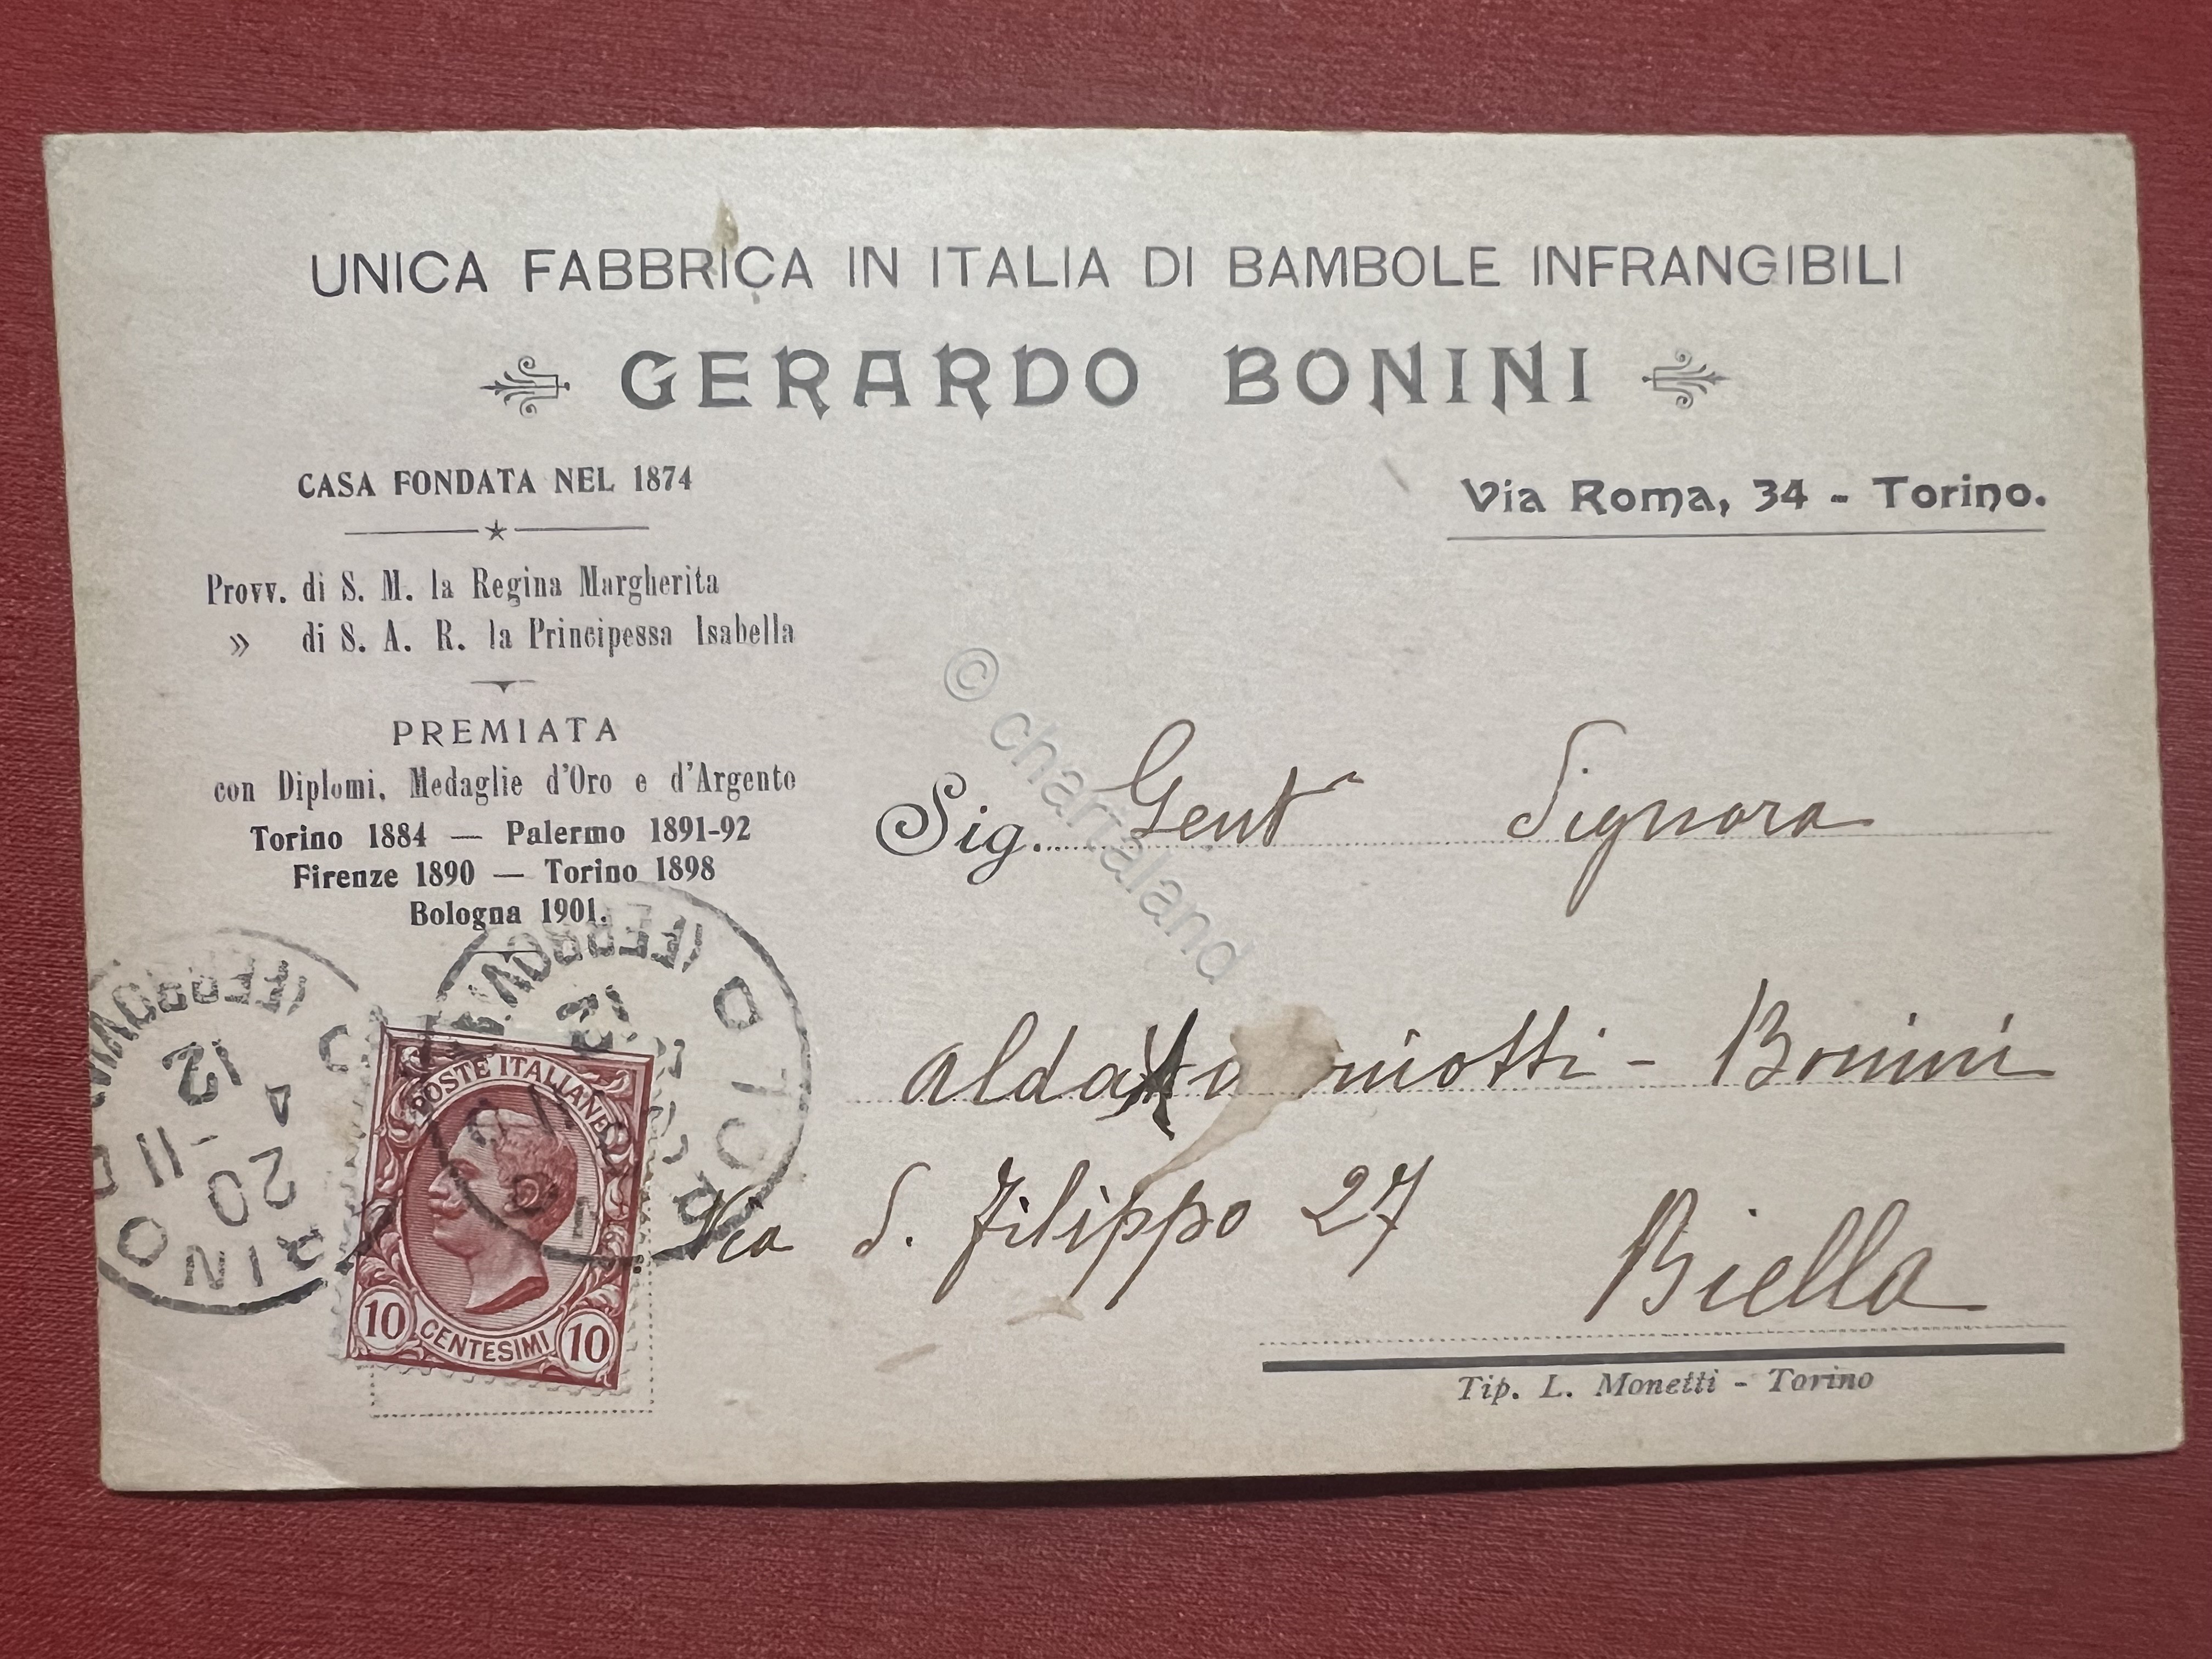 UNICA FABBRICA IN ITALIA DI BAMBOLE INFRANGIBILI
GERARDO BONINI
CASA FONDATA NEL 1874
Via Roma, 34 - Torino.
Provv. di S. M. la Regina Margherita
» di S. A. R. la Principessa Isabella
PREMIATA
con Diplomi, Medaglie d'Oro e d'Argento
Torino 1884 — Palermo 1891-92
Firenze 1890 — Torino 1898
Bologna 1901.
Sig. Gent Signora
Alda niotti - Bonini
Via S. Filippo 27
Biella
Tip. L. Monetti - Torino
POSTE ITALIANE
10 CENTESIMI 10
TORINO
(FERROVIA)
12
20 - 11
© chartaland